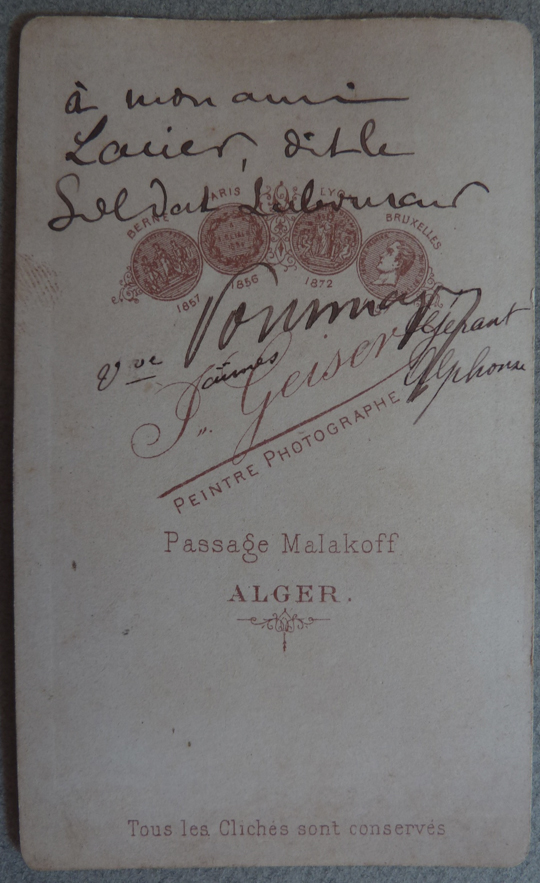 à mon ami
Lacier, dit le
Soldat Laboureur
BERNE PARIS LYON BRUXELLES
1857 1856 1872
Vve
Gérant
J. Geiser Alphonse
aümes
PEINTRE PHOTOGRAPHE
Passage Malakoff
ALGER.
Tous les Clichés sont conservés